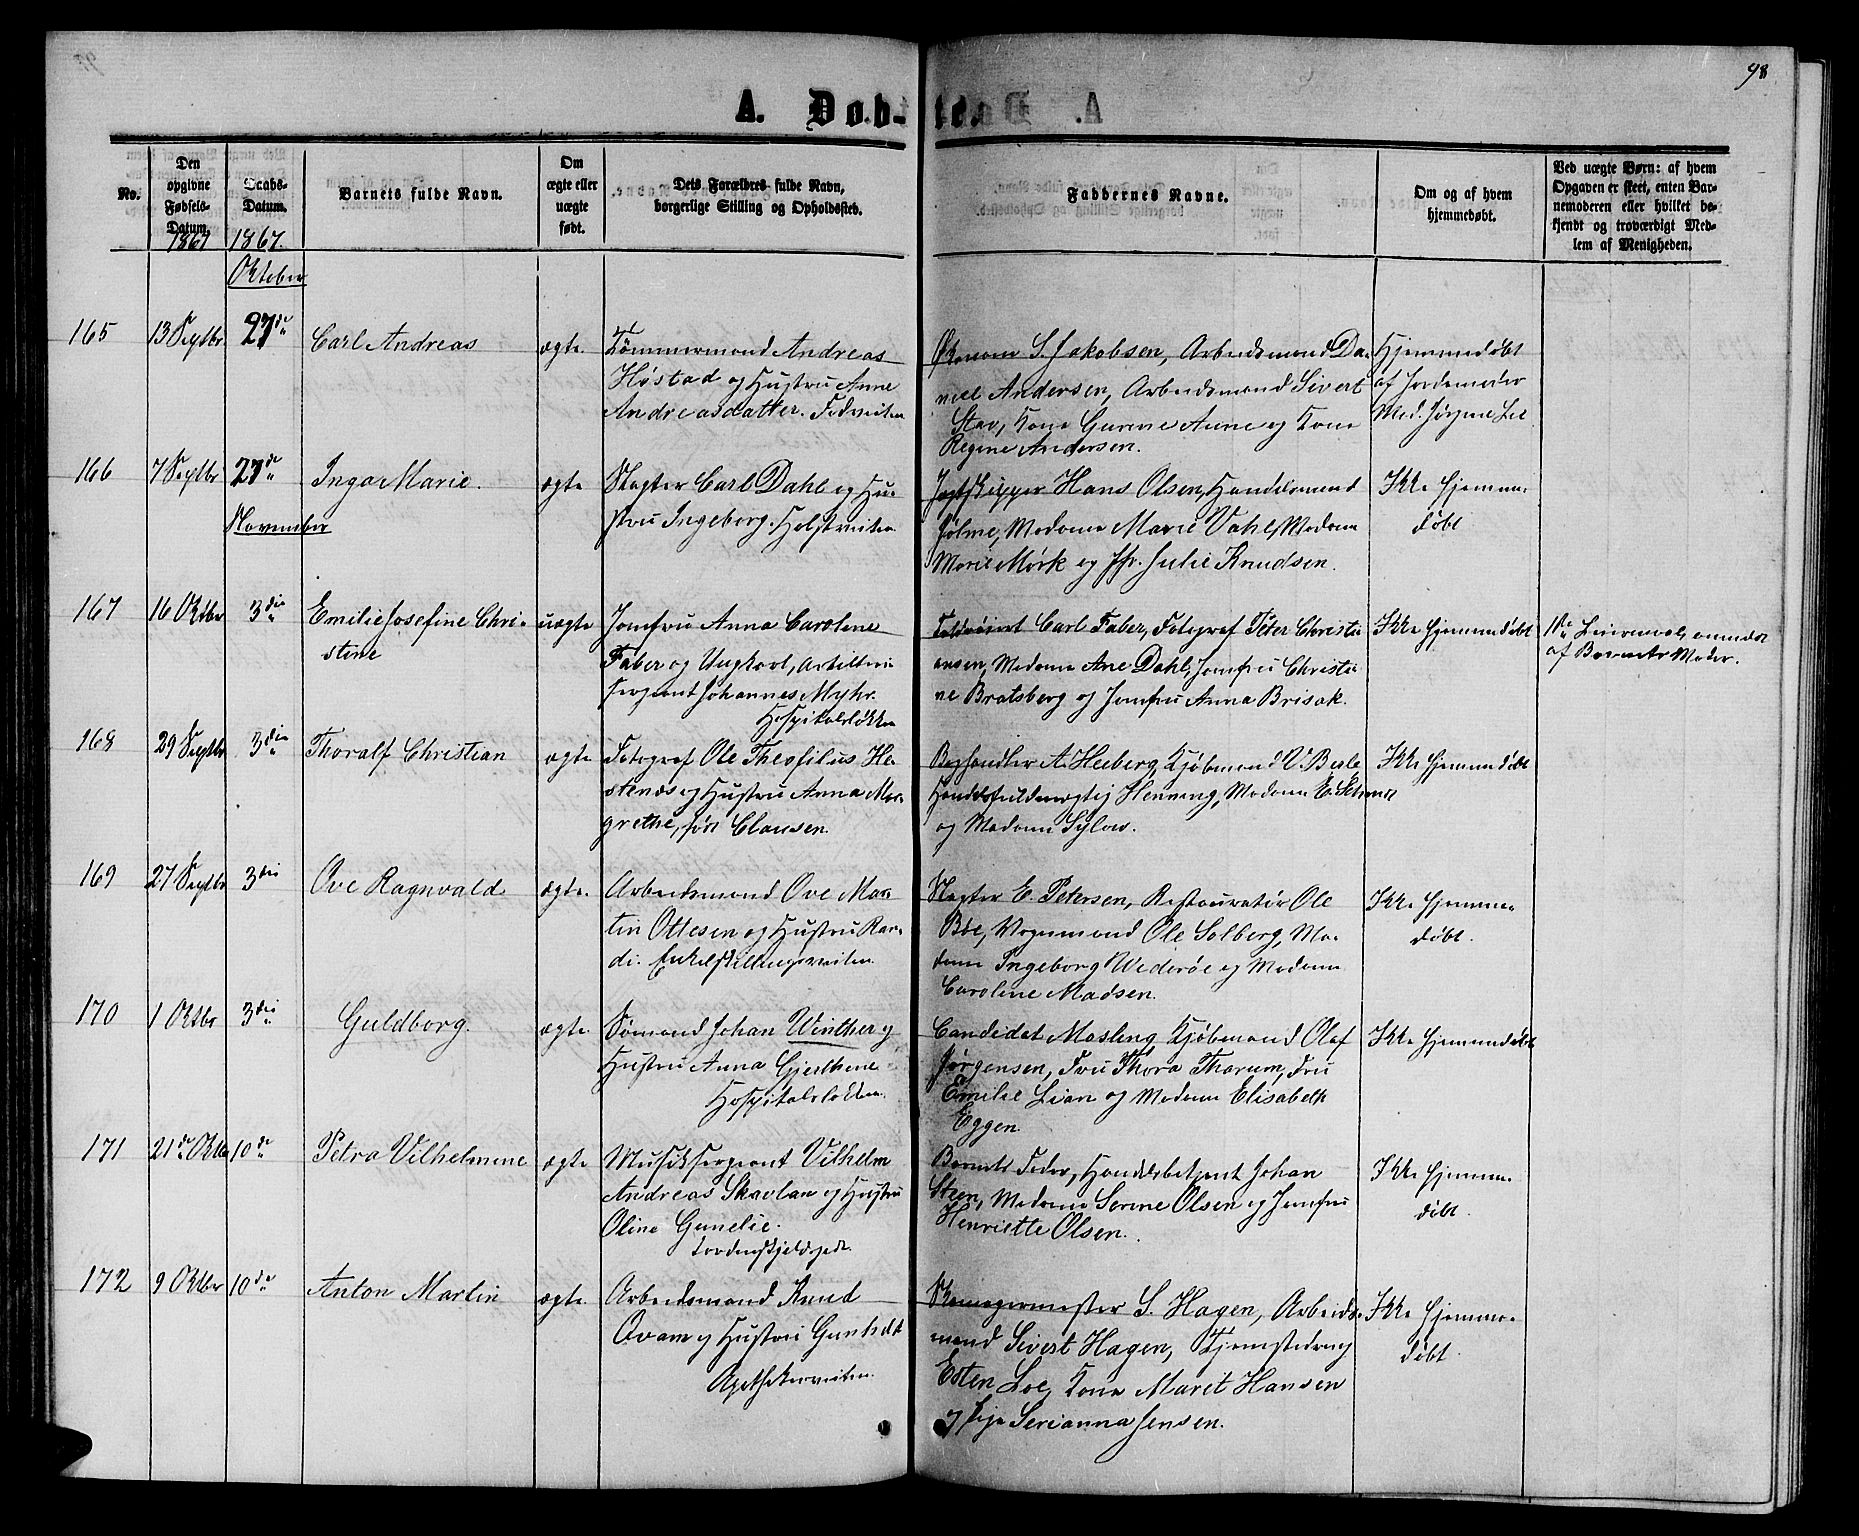 98
A. Døb-
te.
No.
Den
opgivne
Fødsels-
Datum.
Daabs-
Datum.
Barnets fulde Navn.
Om
ægte eller
uægte
født.
Dets Forældres fulde Navn,
borgerlige Stilling og Opholdssted.
Faddernes Navne.
Om og af hvem
hjemmedøbt.
Ved uægte Børn: af hvem
Opgaven er skeet, enten Bar-
nemoderen eller hvilket be-
kjendt og troværdigt Med-
lem af Menigheden.
1867
1867.
Oktober
165
13 Septbr
27de
Carl Andreas
ægte.
Tømmermand Andreas
Høstad og Hustru Anne
Andreasdatter.
Økonom S. Jakobsen, Arbeidsmand Da-
niel Andersen, Arbeidsmand Sivert
Stav, Kone Gurine Aune og Kone
Regine Andersen.
Hjemmedøbt
af Jordemoder
Mad. Jørgine Lie
166
7 Septbr
27de
Inga Marie.
ægte
Slagter Carl Dahl og Hu-
stru Ingeborg. Holstveiten
Jagtskipper Hans Olsen, Handelsmand
Holme, Madame Marie Vahl, Madame
Marie Mörk og Jfr. Julie Knudsen.
Ikke hjemme-
døbt
November
167
16 Oktbr
3die
Emilie Josefine Chri-
stine
uægte
Jomfru Anna Caroline
Faber og Ungkarl, Artilleri
sergeant Johannes Myhr.
Hospitalsløkken
Carl Faber, Fotograf Peter Christi-
ansen, Madame Ane Dahl, Jomfru Christi-
ne Bratsberg og Jomfru Anna Brisak.
Ikke hjemmedøbt
1ste Leiermaal, anmeldt
af Barnets Moder.
168
29 Septbr
3die
Thoralf Christian
ægte
Fotograf Ole Theofilus He-
stenæs og Hustru Anna Mar-
grethe, født Clausen.
Boghandler A. Heiberg, Kjøbmand V. Berle
Handelsfuldmægtig Henning, Madame E.
og Madame Sylow.
Ikke hjemmedøbt
169
27 Septbr
3die
Ove Ragnvald
ægte.
Arbeidsmand Ove Mar-
tin Ottesen og Hustru Ran-
di. Enkelskillingsveiten.
Slagter E. Petersen, Restauratør Ole
Bøe, Vognmand Ole Solberg, Ma-
dame Ingeborg Wederøe og Madame
Caroline Madsen.
Ikke hjemme-
døbt.
170
1 Oktbr
3die
Guldborg.
ægte
Sømand Johan Winther og
Hustru Anna Gjerthine
Hospitalsløkken.
Candidat Mosling, Kjøbmand Olaf
Jörgensen, Fru Thora Tharum, Fru
Emilie Lian og Madame Elisabeth
Eggen.
Ikke hjemmedøbt
171
21de Oktbr
10de
Petra Vilhelmine
ægte
Musiksergeant Vilhelm
Andreas Skavlan og Hustru
Oline Gunelie.
Tordenskjoldsgade.
Barnets Fader, Handelsbetjent Johan
Steen, Madame Serine Olsen og Jomfru
Henriette Olsen.
Ikke hjemme-
døbt.
172
9 Oktbr
10de
Anton Martin
ægte.
Arbeidsmand Knud
Ovam og Hustru Gunhild
Apothekerveiten.
Skomagermester S. Hagen, Arbeids-
mand Sivert Hagen,
Esten Loe, Kone Maret Hansen
og Pige Serianna Jensen.
Ikke hjemme-
døbt.